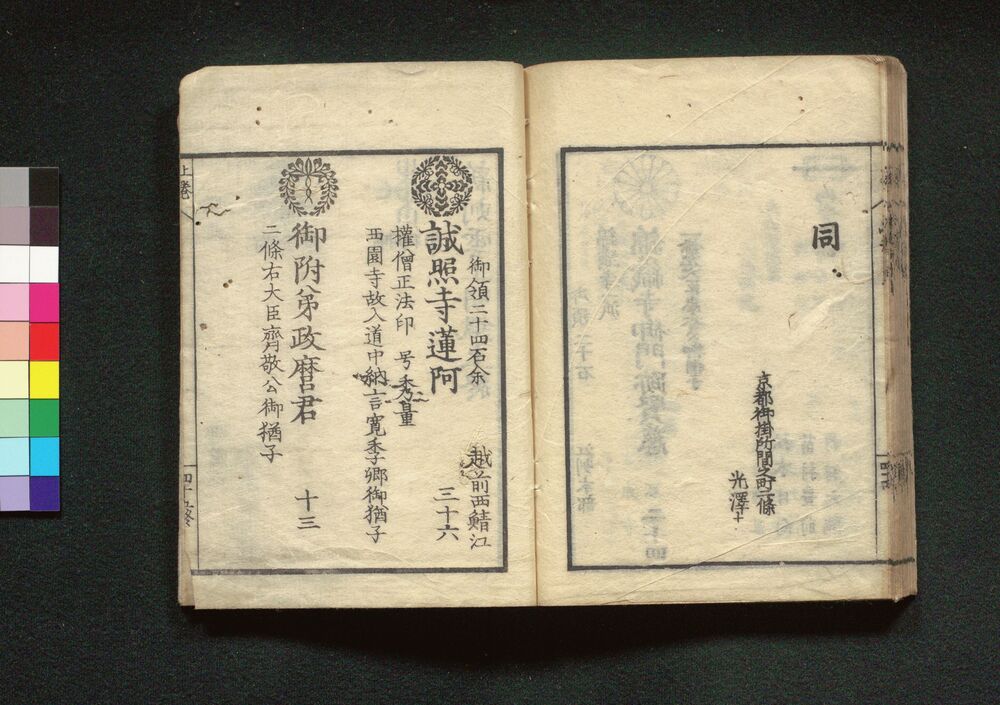 同
京都御掛所間之町二條
光澤寺
御領二十四石余
越前西鯖江
誠照寺蓮阿
三十六
權僧正法印
号秀量
西園寺故入道中納言寛季卿御猶子
御附弟政麿君
十三
二條右大臣齊敬公御猶子
上巻
四十五終